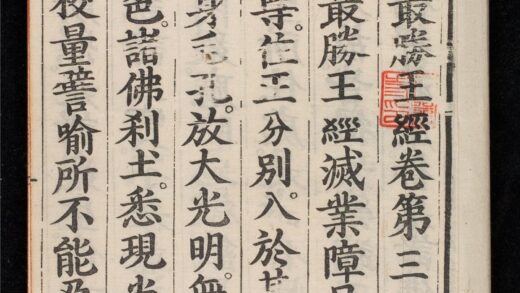 最勝王經卷第三
最勝王經滅業障品
尊。住正分別。入於甚
身毛孔。放大光明。無
色。諸佛刹土。悉現光
校量譬喻所不能及